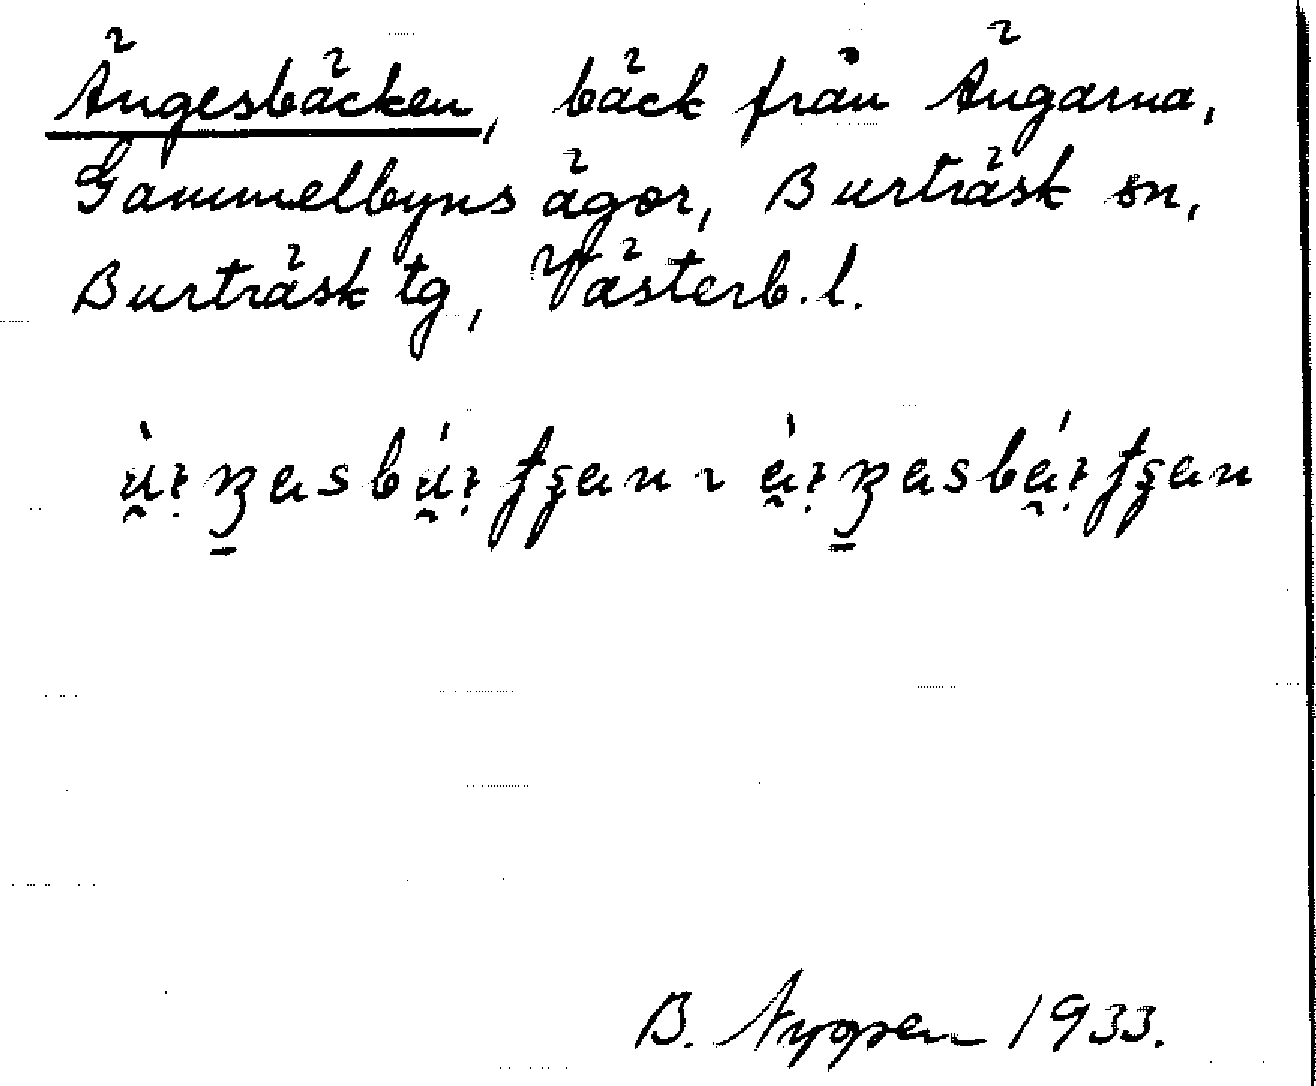 Ängesbäcken, bäck från Ängarna,
Gammelbyns ägor, Burträsk sn,
Burträsk tg, Västerb. l.
B. 1933.